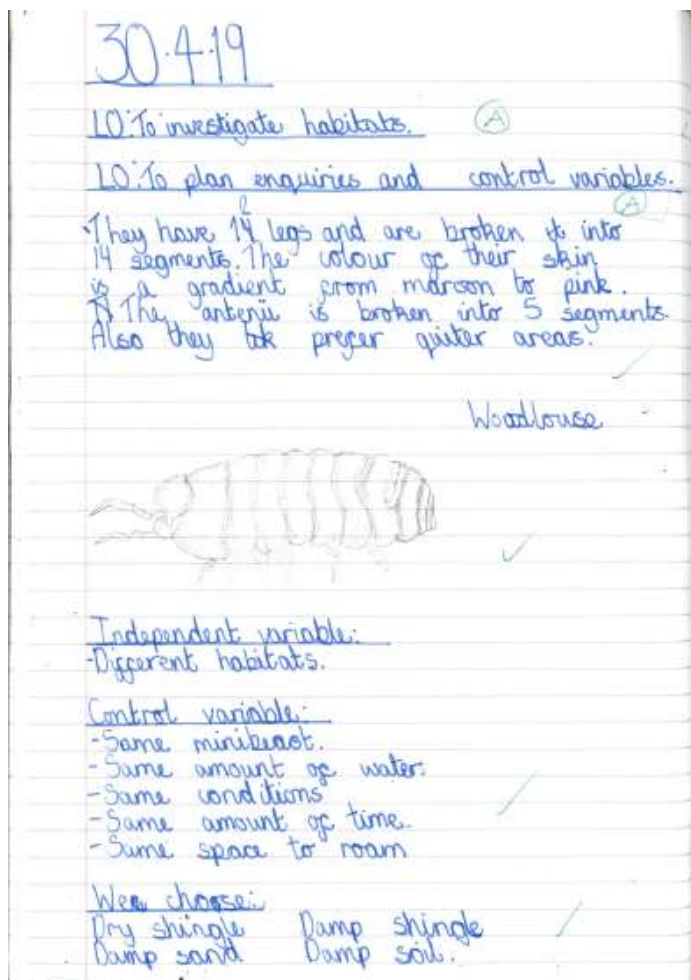 30.4.19
LO: To investigate habitats. A
LO: To plan enquiries and control variables.
A
They have 14 legs and are broken into
14 segments. The colour of their skin
is a gradient from maroon to pink.
The antenii is broken into 5 segments.
Also they prefer quiter areas.
Woodlouse
Independent variable:
-Different habitats.
Control variable:
-Same minibeast.
-Same amount of water.
-Same conditions
-Same amount of time.
-Same space to roam
We choose:
Dry shingle Damp shingle
Damp sand Damp soil.